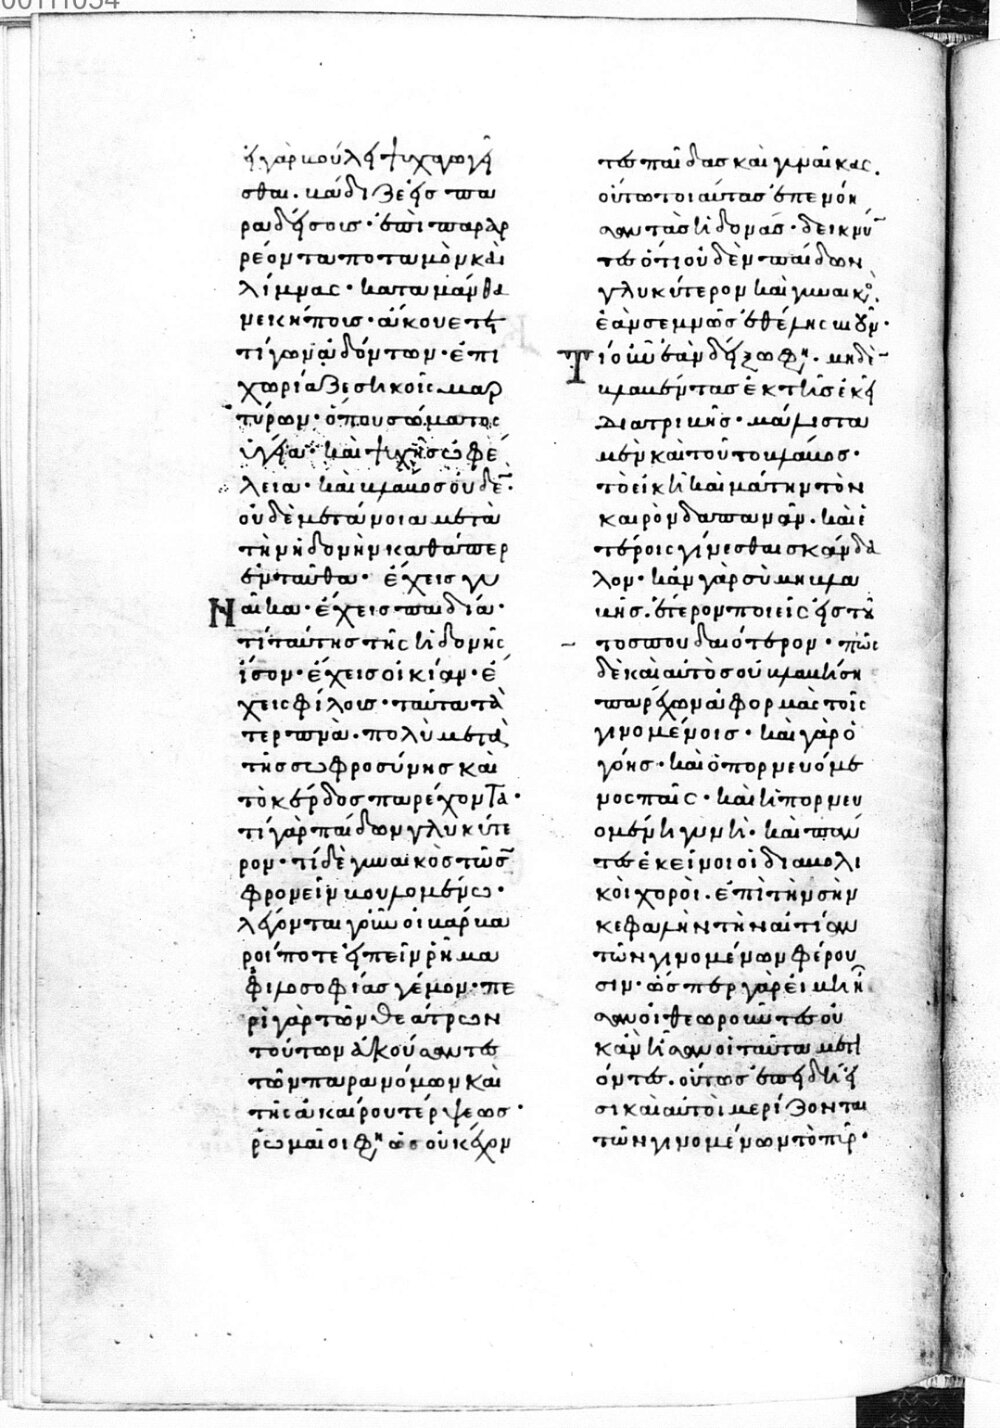 εἰ γὰρ βούλει ψυχαγωγεῖ
σθαι· βάδιζε εἰς πα
ραδείσοις· ἐπὶ παραρ
ρέοντα ποταμὸν καὶ
λίμνας· καταμάνθα
νε κήποις· ἄκουε τετ
τίγων ἀδόντων· ἐπι
χωρίαζε σηκοῖς μαρ
τύρων· ὅπου σώματος
ὑγεία· καὶ ψυχῆς ὠφέ
λεια· καὶ βλάβος οὐδέν·
οὐδὲ μετάνοια μετὰ
τὴν ἡδονὴν καθάπερ
ἐνταῦθα· ἔχεις γυ
Ναῖκα· ἔχεις παιδία·
τί ταύτης τῆς ἡδονῆς
ἴσον· ἔχεις οἰκίαν· ἔ
χεις φίλοις· ταῦτα τὰ
τερπνά· πολὺ μετὰ
τῆς σωφροσύνης καὶ
τὸ κέρδος παρέχοντα·
τί γὰρ παίδων γλυκύτε
ρον· τί δὲ γυναικὸς τῶ σω
φρονεῖν βουλομένω·
λέγονται γοῦν οἱ βάρβα
ροί ποτε εἰπεῖν ῥῆμα
φιλοσοφίας γέμον· πε
ρὶ γὰρ τῶν θεάτρων
τούτων ἀκούσαντες
τῶν παρανόμων καὶ
τῆς ἀκαίρου τέρψεως·
ῥωμαῖοι φη ὡς οὐκ ἔχον
τες παῖδας καὶ γυναῖκας.
οὕτω τοιαύτας ἐπενόη
σαν τὰς ἡδονάς· δεικνύν
τες ὅτι οὐδὲν παίδων
γλυκύτερον καὶ γυναικό(ς)·
ἐὰν σεμνῶς ἐθέλης ζῆν·
Τί οὖν ἐὰν δείξω φη· μηδὲν
βλαβέντας ἐκ τῆς ἐκεῖ
διατριβῆς· μάλιστα
μὲν καὶ τοῦτο βλάβος·
τὸ εἰκῆ καὶ μάτην τὸν
καιρὸν δαπανᾶν· καὶ ἑ
τέροις γίνεσθαι σκάνδα
λον· κἂν γὰρ σὺ μὴ βλα
βῆς· ἕτερον ποιεῖς εἰς τοῦ
το σπουδαιότερον· πῶς
δὲ καὶ αὐτὸς οὐ βλαβήση
παρέχων ἀφορμὰς τοῖς
γινομένοις· καὶ γὰρ ὁ
γόης· καὶ ὁ πορνευόμε
νος παῖς· καὶ ἡ πορνευ
ομένη γυνὴ· καὶ πάν
τες ἐκεῖνοι οἱ διαβολι
κοὶ χοροὶ· ἐπὶ τὴν σὴν
κεφαλὴν τὴν αἰτίαν
τῶν γινομένων φέρου
σιν· ὥσπερ γὰρ εἰ μὴ ἦ
σαν οἱ θεωροῦντες οὐ
κἂν ἦσαν οἱ ταῦτα μετι
όντες· οὕτως ἐπειδή εἰ
σι καὶ αὐτοὶ μερίζονται
τῶν γινομένων τὸ πῦρ·